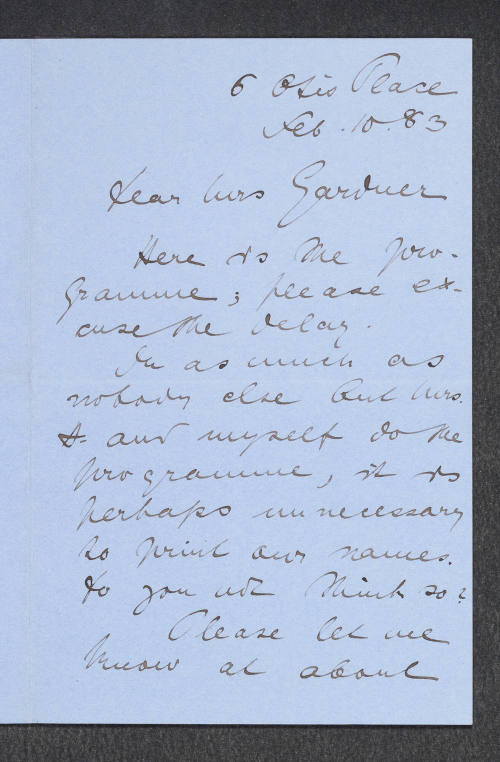 6 Otis Place
Feb. 10. 83
Dear Mrs Gardner
Here is the pro-
gramme; please ex-
cuse the delay.
In as much as
nobody else but Mrs.
and myself do the
programme, it is
perhaps unnecessary
to print our names.
Do you not think so?
Please let me
know at about